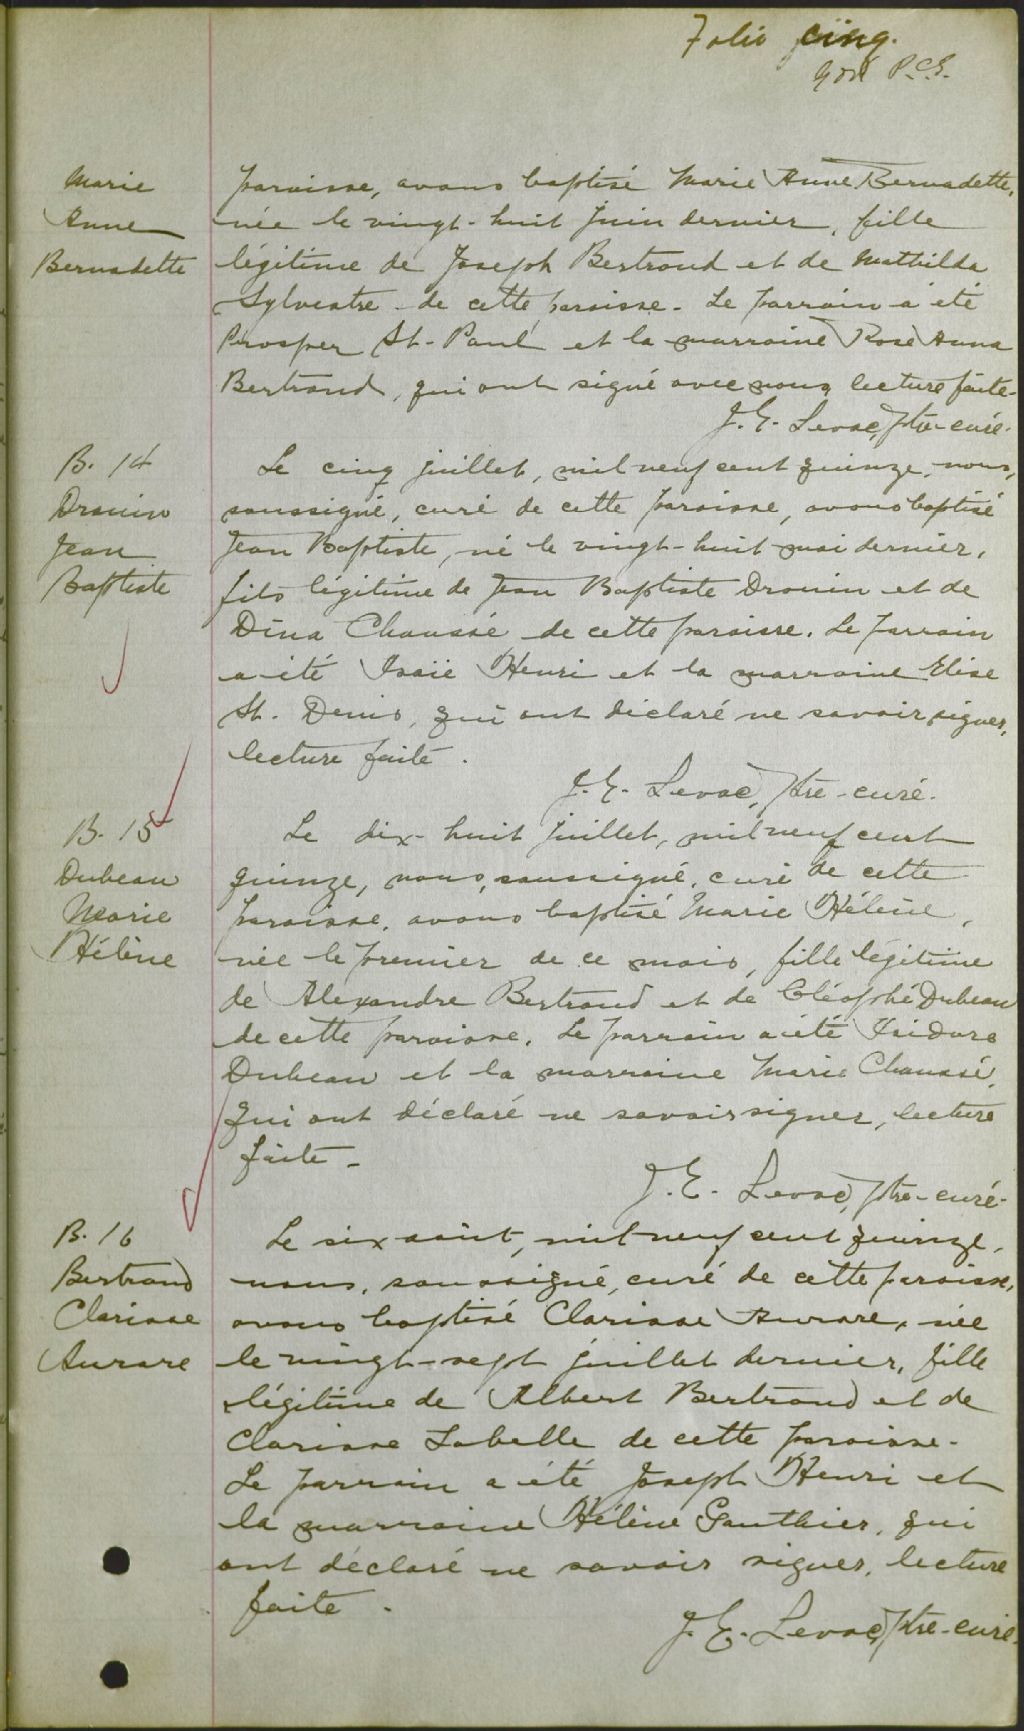 Folio cinq.
P.C.S.
Marie
Anne
Bernadette
paroisse, avons baptisé Marie Anne Bernadette,
née le vingt-huit juin dernier, fille
légitime de Joseph Bertrand et de Mathilda
Sylvestre de cette paroisse. Le parrain a été
Prosper St-Paul et la marraine Rose Anna
Bertrand, qui ont signé avec nous, lecture faite.
J. E. Levac, ptre-curé.
B. 14
Drouin
Jean
Baptiste
Le cinq juillet, mil neuf cent quinze, nous,
soussigné, curé de cette paroisse, avons baptisé
Jean Baptiste, né le vingt-huit mai dernier,
fils légitime de Jean Baptiste Drouin et de
Dina Chaussé de cette paroisse. Le parrain
a été Isaïe Henri et la marraine Elise
St. Denis, qui ont déclaré ne savoir signer,
lecture faite.
J. E. Levac, ptre-curé.
B. 15
Dubeau
Marie
Hélène
Le dix-huit juillet, mil neuf cent
quinze, nous, soussigné, curé de cette
paroisse, avons baptisé Marie Hélène,
née le premier de ce mois, fille légitime
de Alexandre Bertrand et de Cléophé Dubeau
de cette paroisse. Le parrain a été Isidore
Dubeau et la marraine Marie Chaussé,
qui ont déclaré ne savoir signer, lecture
faite.
J. E. Levac, ptre-curé.
B. 16
Bertrand
Clarisse
Aurore
Le six août, mil neuf cent quinze,
nous, soussigné, curé de cette paroisse,
avons baptisé Clarisse Aurore, née
le vingt-sept juillet dernier, fille
légitime de Albert Bertrand et de
Clarisse Labelle de cette paroisse.
Le parrain a été Joseph Henri et
la marraine Hélène Gauthier, qui
ont déclaré ne savoir signer, lecture
faite.
J. E. Levac, ptre-curé.